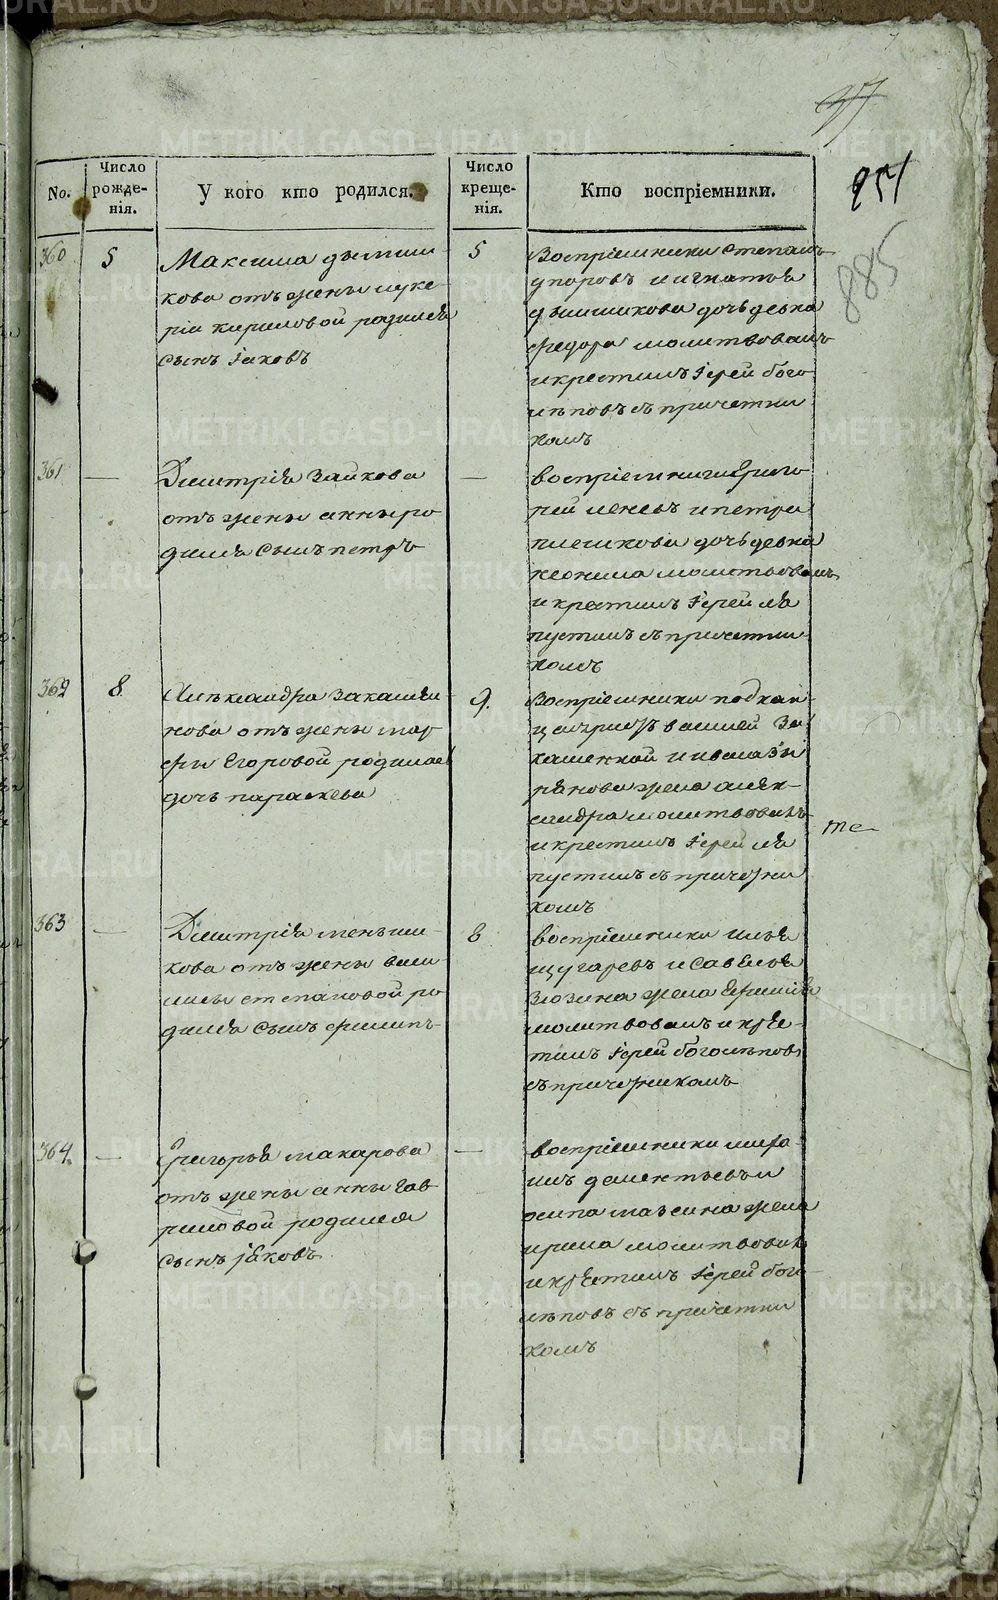 37
251
885
No.
Число рожде-
нія.
У кого кто родился.
Число креще-
нія.
Кто воспріемники.
360
5
Максима дымши-
кова отъ жены луке-
ріи кириловой родился
сынъ іаковъ
5
Воспріемники степанъ
упоровъ и игнатья
дымшикова дочь девка
федора молитвовалъ
и крестилъ іерей бого
лѣповъ съ причетни
комъ
361
—
Дмитрія Зайкова
отъ жены анны ро
дился сынъ петръ
—
воспріемники григо
рей
и петра
плешкова дочь девка
неонила молитвовалъ
и крестилъ іерей ла
пустинъ съ причетни-
комъ
362
8
Александра Закаменн
нова отъ жены мар
фы Егоровой родилась
дочь параскева
9.
Воспріемники
василей За
каменной и ивана зы
рянова жена алек-
сандра молитвовалъ
и крестилъ іерей ла
пустинъ съ причетни
комъ
те
363
—
Дмитрія меньши-
кова отъ жены васи
лисы степановой ро
дился сынъ филипъ
8
воспріемники илья
щугаревъ и савелья
Зюзина жена
молитвовалъ и кре-
тилъ іерей боголѣповъ
съ причетникомъ
364.
—
Григорья макарова
отъ жены анны гав
риловой родился
сынъ іяковъ
—
воспріемники
дементьевъ и
осипа мазеина жена
ирина молитвовалъ
и крестилъ іерей бого
лѣповъ съ причетни
комъ
METRIKI.GASO-URAL.RU